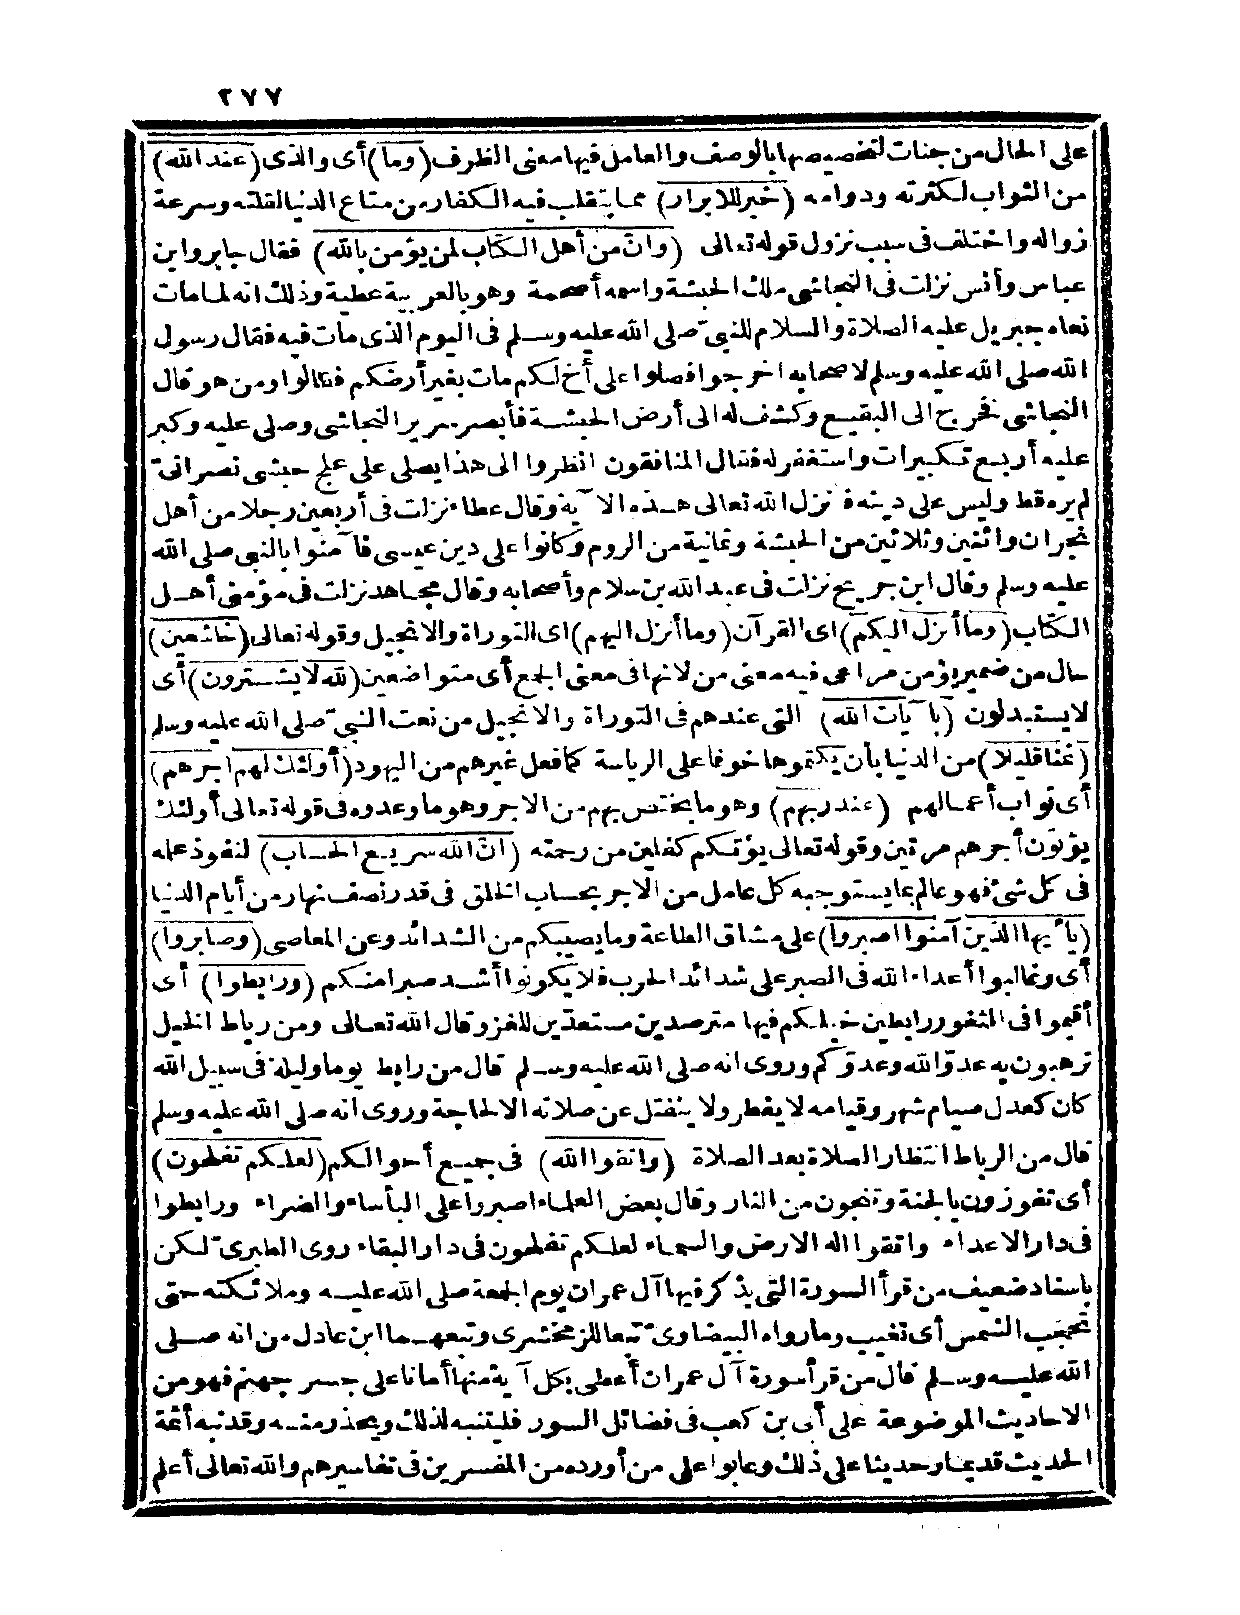 ٢٧٧
على الحال من جنات لتخصيصها بالوصف والعامل فيها معنى الظرف (وما) أى والذى (عند الله)
من الثواب لكثرته ودوامه (خير للابرار) مما يتقلب فيه الكفار من متاع الدنيا لقلته وسرعة
زواله واختلف فى سبب نزول قوله تعالى (وانّ من أهل الكتاب لمن يؤمن بالله) فقال جابر وابن
عباس وأنس نزلت فى النجاشى ملك الحبشة واسمه أصحمة وهو بالعربية عطية وذلك انه لما مات
نعاه جبريل عليه الصلاة والسلام للنبىّ صلى الله عليه وسلم فى اليوم الذى مات فيه فقال رسول
الله صلى الله عليه وسلم لاصحابه اخرجوا فصلوا على أخ لكم مات بغير أرضكم فقالوا ومن هو قال
النجاشى فخرج الى البقيع وكشف له الى أرض الحبشة فأبصر سرير النجاشى وصلى عليه وكبر
عليه أربع تكبيرات واستغفر له فقال المنافقون انظروا الى هذا يصلى على علج حبشى نصرانىّ
لم يره قط وليس على دينه فنزل الله تعالى هذه الآية وقال عطاء نزلت فى أربعين رجلا من أهل
نجران واثنين وثلاثين من الحبشة وثمانية من الروم وكانوا على دين عيسى فآمنوا بالنبى صلى الله
عليه وسلم وقال ابن جريج نزلت فى عبد الله بن سلام وأصحابه وقال مجاهد نزلت فى مؤمنى أهل
الكتاب (وما أنزل اليكم) اى القرآن (وما أنزل اليهم) اى التوراة والانجيل وقوله تعالى (خاشعين)
حال من ضمير يؤمن مراعى فيه معنى من لانها فى معنى الجمع أى متواضعين (لله لا يشترون) أى
لا يستبدلون (بآيات الله) التى عندهم فى التوراة والانجيل من نعت النبىّ صلى الله عليه وسلم
(ثمنا قليلا) من الدنيا بأن يكتموها خوفا على الرياسة كما فعل غيرهم من اليهود (أولئك لهم اجرهم)
أى ثواب أعمالهم (عند ربهم) وهو ما يختص بهم من الاجر وهو ما وعدوه فى قوله تعالى أولئك
يؤتون أجرهم مرتين وقوله تعالى يؤتكم كفلين من رحمته (انّ الله سريع الحساب) لنفوذ علمه
فى كل شئ فهو عالم بما يستوجبه كل عامل من الاجر بحساب الخلق فى قدر نصف نهار من أيام الدنيا
(يا أيها الذين آمنوا اصبروا) على مشاق الطاعة وما يصيبكم من الشدائد وعن المعاصى (وصابروا)
أى وغالبوا أعداء الله فى الصبر على شدائد الحرب فلا يكونوا أشد صبرا منكم (ورابطوا) أى
أقيموا فى الثغور رابطين خيلكم فيها مترصدين مستعدّين للغزو قال الله تعالى ومن رباط الخيل
ترهبون به عدوّ الله وعدوّكم وروى انه صلى الله عليه وسلم قال من رابط يوما وليلة فى سبيل الله
كان كعدل صيام شهر وقيامه لا يفطر ولا ينفتل عن صلاته الا لحاجة وروى انه صلى الله عليه وسلم
قال من الرباط انتظار الصلاة بعد الصلاة (واتقوا الله) فى جميع أحوالكم (لعلكم تفلحون)
أى تفوزون بالجنة وتنجون من النار وقال بعض العلماء اصبروا على البأساء والضراء ورابطوا
فى دار الاعداء واتقوا اله الارض والسماء لعلكم تفلحون فى دار البقاء روى الطبرىّ لكن
باسناد ضعيف من قرأ السورة التى يذكر فيها آل عمران يوم الجمعة صلى الله عليه وملائكته حتى
تحجب الشمس أى تغيب وما رواه البيضاوىّ تبعا للزمخشرى وتبعهما ابن عادل من انه صلى
الله عليه وسلم قال من قرأ سورة آل عمران أعطى بكل آية منها أمانا على جسر جهنم فهو من
الاحاديث الموضوعة على أبى بن كعب فى فضائل السور فليتنبه لذلك ويحذر منه وقد نبه أئمة
الحديث قديما وحديثا على ذلك وعابوا على من أورده من المفسرين فى تفاسيرهم والله تعالى أعلم